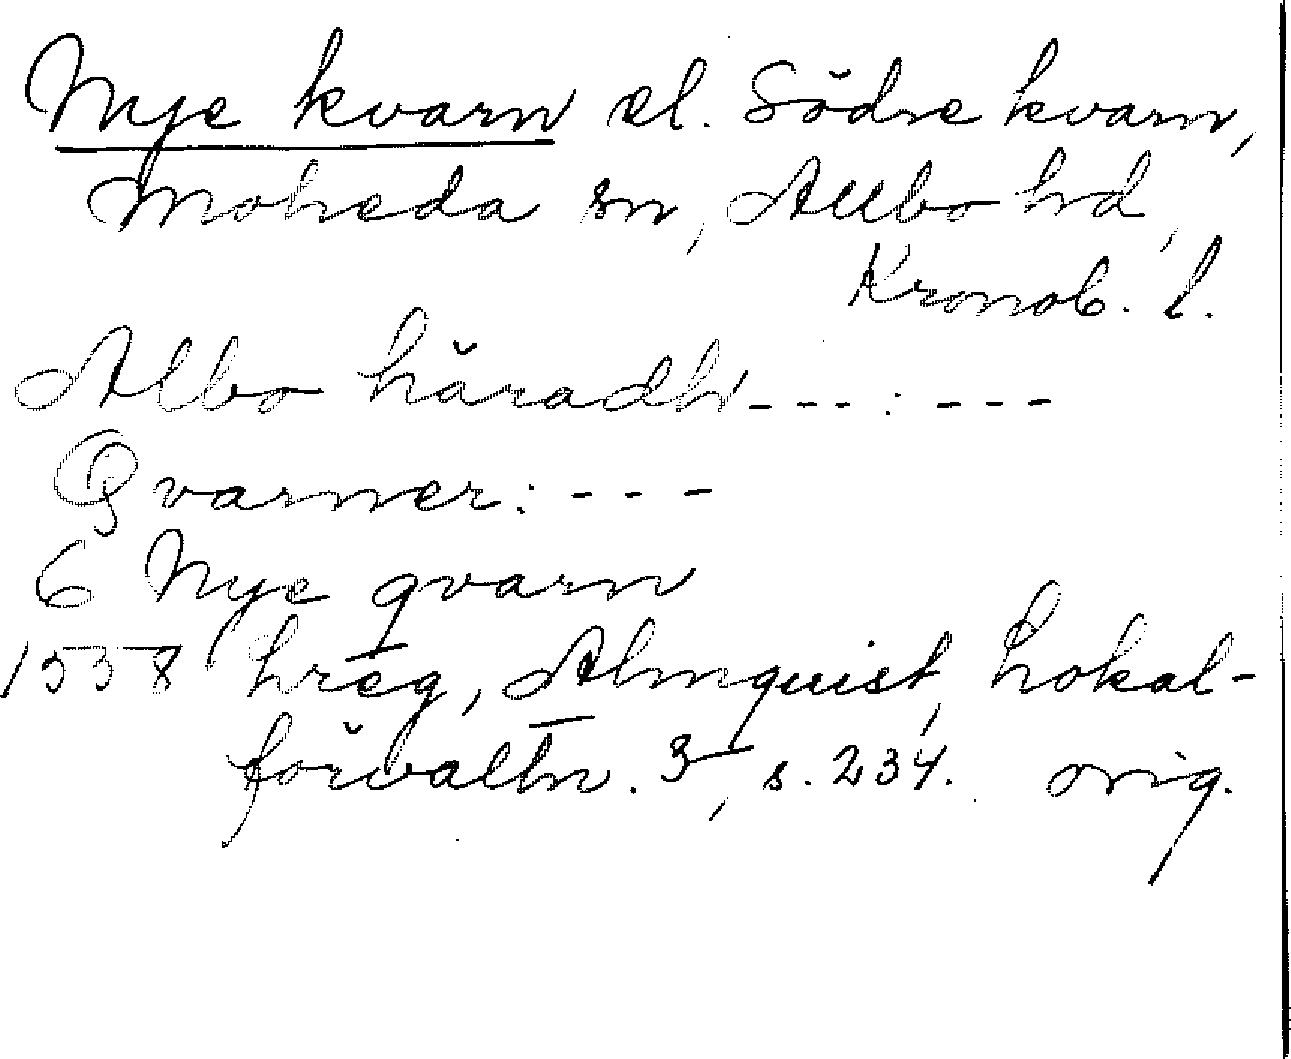 Nye kvarn el. Södre kvarn,
Moheda sn, Allbo hd,
Kronob. l.
Albo häradh---:---
Qvarner: ---
6 Nye qvarn
1558 hreg, Almquist, Lokal-
förvaltn. 3, s. 234. orig.